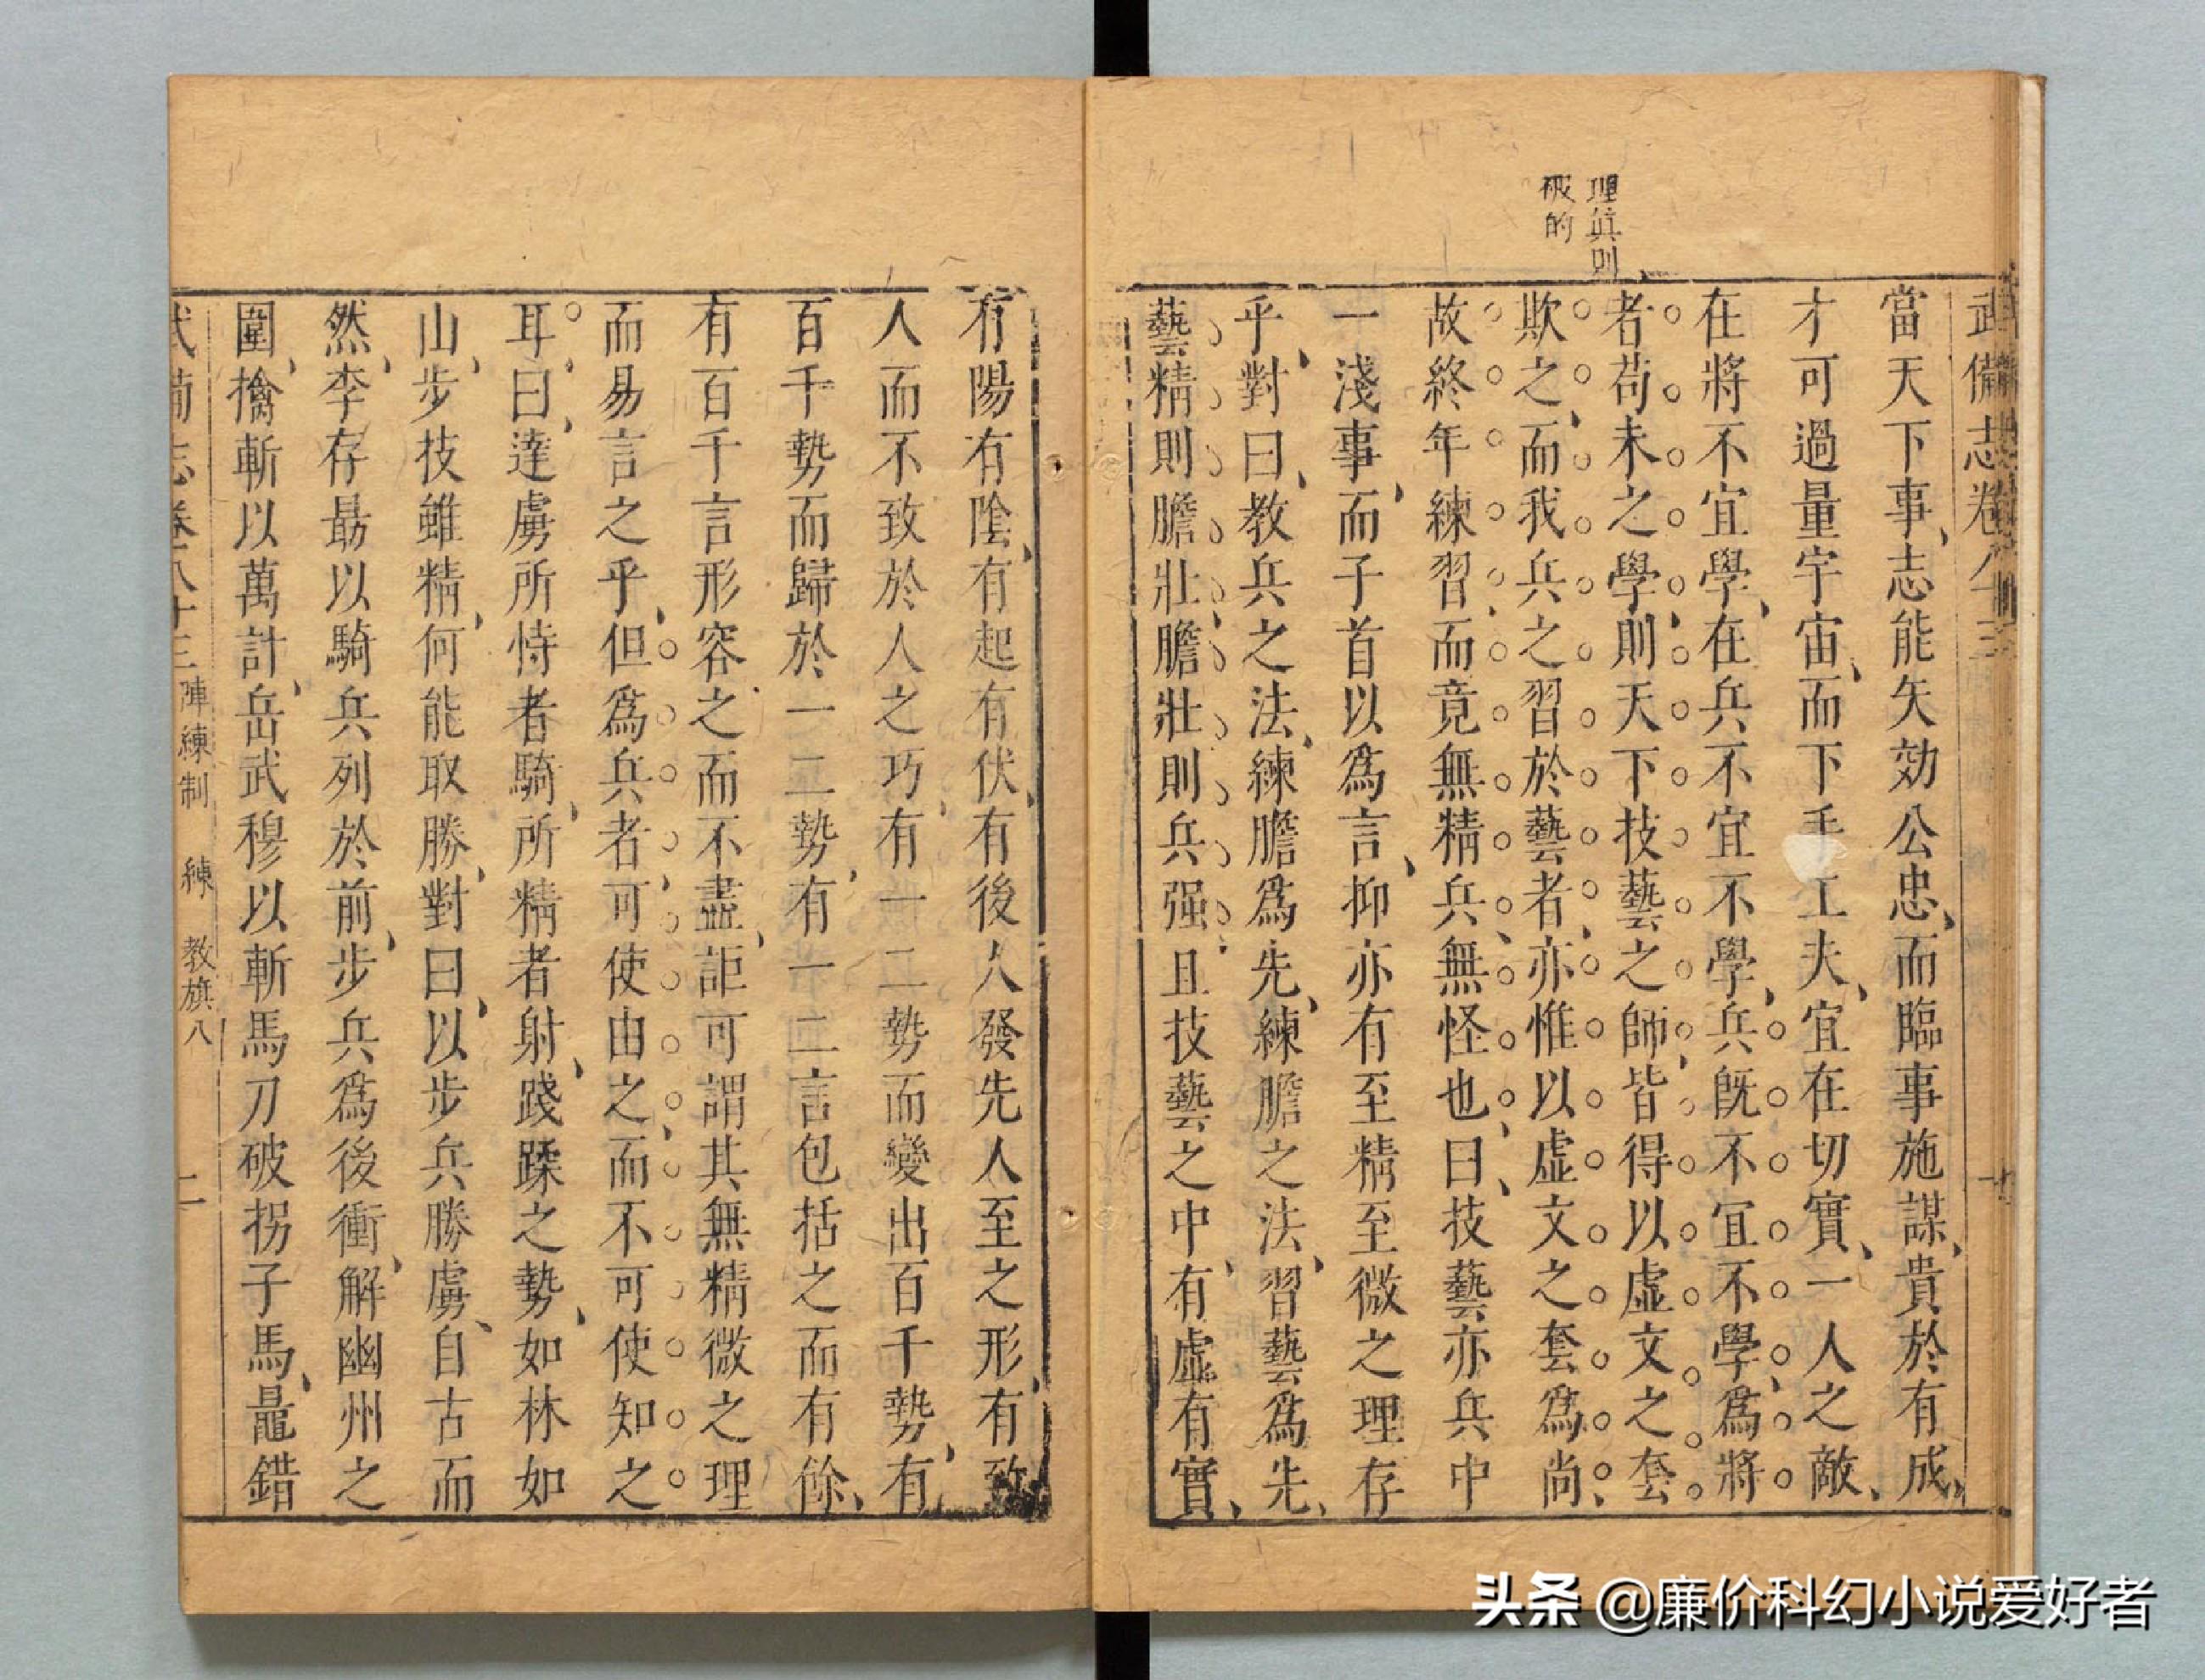 武備志卷八十三
當天下事志能矢効公忠而臨事施謀貴於有成
才可過量宇宙而下手工夫宜在切實一人之敵
在將不宜學在兵不宜不學兵既不宜不學爲將
者苟未之學則天下技藝之師皆得以虛文之套
欺之而我兵之習於藝者亦惟以虛文之套爲尚
故終年練習而竟無精兵無怪也曰技藝亦兵中
一淺事而子首以爲言抑亦有至精至微之理存
乎對曰教兵之法練膽爲先練膽之法習藝爲先
藝精則膽壯膽壯則兵强且技藝之中有虛有實
理眞則
破的
有陽有陰有起有伏有後人發先人至之形有致
人而不致於人之巧有一二勢而變出百千勢有
百千勢而歸於一二勢有一二言包括之而有餘
有百千言形容之而不盡詎可謂其無精微之理
而易言之乎但爲兵者可使由之而不可使知之
耳曰達虜所恃者騎所精者射踐蹂之勢如林如
山步技雖精何能取勝對曰以步兵勝虜自古而
然李存勗以騎兵列於前步兵爲後衝解幽州之
圍擒斬以萬計岳武穆以斬馬刀破拐子馬鼂錯
武備志卷八十三 陣練制 練 教旗八 二
头条 @廉价科幻小说爱好者